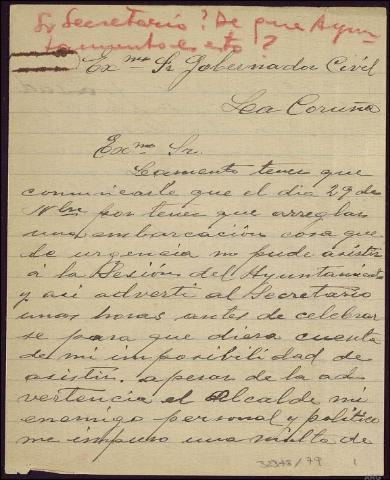 Sr Secretario? De que Ayun
tamiento es esto?
Exmo Sr Gobernador Civil
La Coruña
Exmo Sr.
Lamento tener que
comunicarle que el dia 29 de
Nbre por tener que arreglar
una embarcación cosa que
de urgencia no pude asistir
á la Sesion del Ayuntamiento
y asi adverti al Secretario
unas horas antes de celebrar
se para que diera cuenta
de mi imposibilidad de
asistir. apesar de la ad
vertencia el Alcalde mi
enemigo personal y politico
me impuso una multa de
32348/79 1